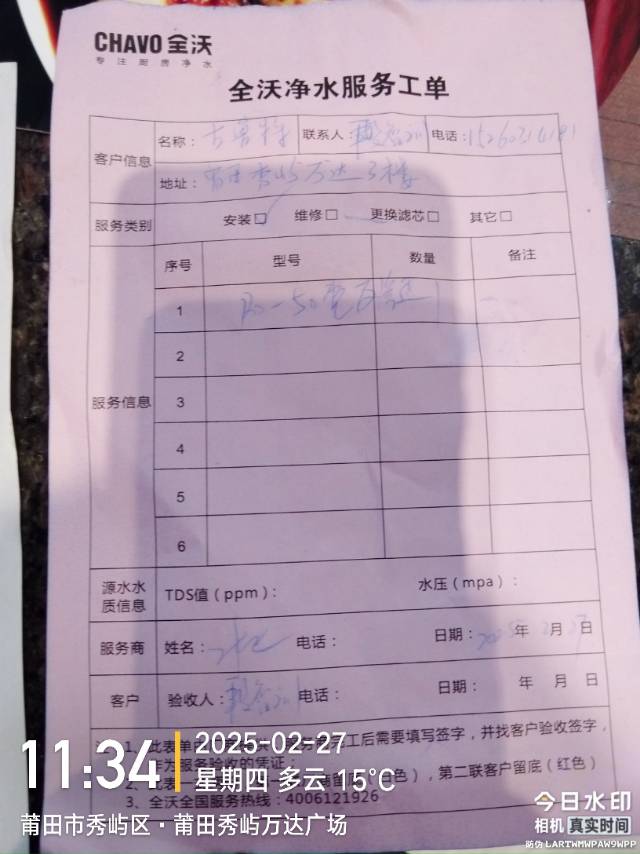 CHAVO 全沃
专注厨房净水
全沃净水服务工单
客户信息 名称: 联系人 电话:
地址: 莆田秀屿万达3楼
服务类别 安装□ 维修□ 更换滤芯□ 其它□
服务信息 序号 型号 数量 备注
1
2
3
4
5
6
源水水质信息 TDS值(ppm): 水压(mpa):
服务商 姓名: 电话: 日期: 2025年 2月 27日
客户 验收人: 电话: 日期: 年 月 日
1、此表单 工后需要填写签字,并找客户验收签字,
作为服务验收的凭证;
2、此表一 色),第二联客户留底(红色)
3、全沃全国服务热线:4006121926
11:34
2025-02-27
星期四 多云 15°C
莆田市秀屿区·莆田秀屿万达广场
今日水印
相机 真实时间
防伪 LARTWMWPAW9WPP